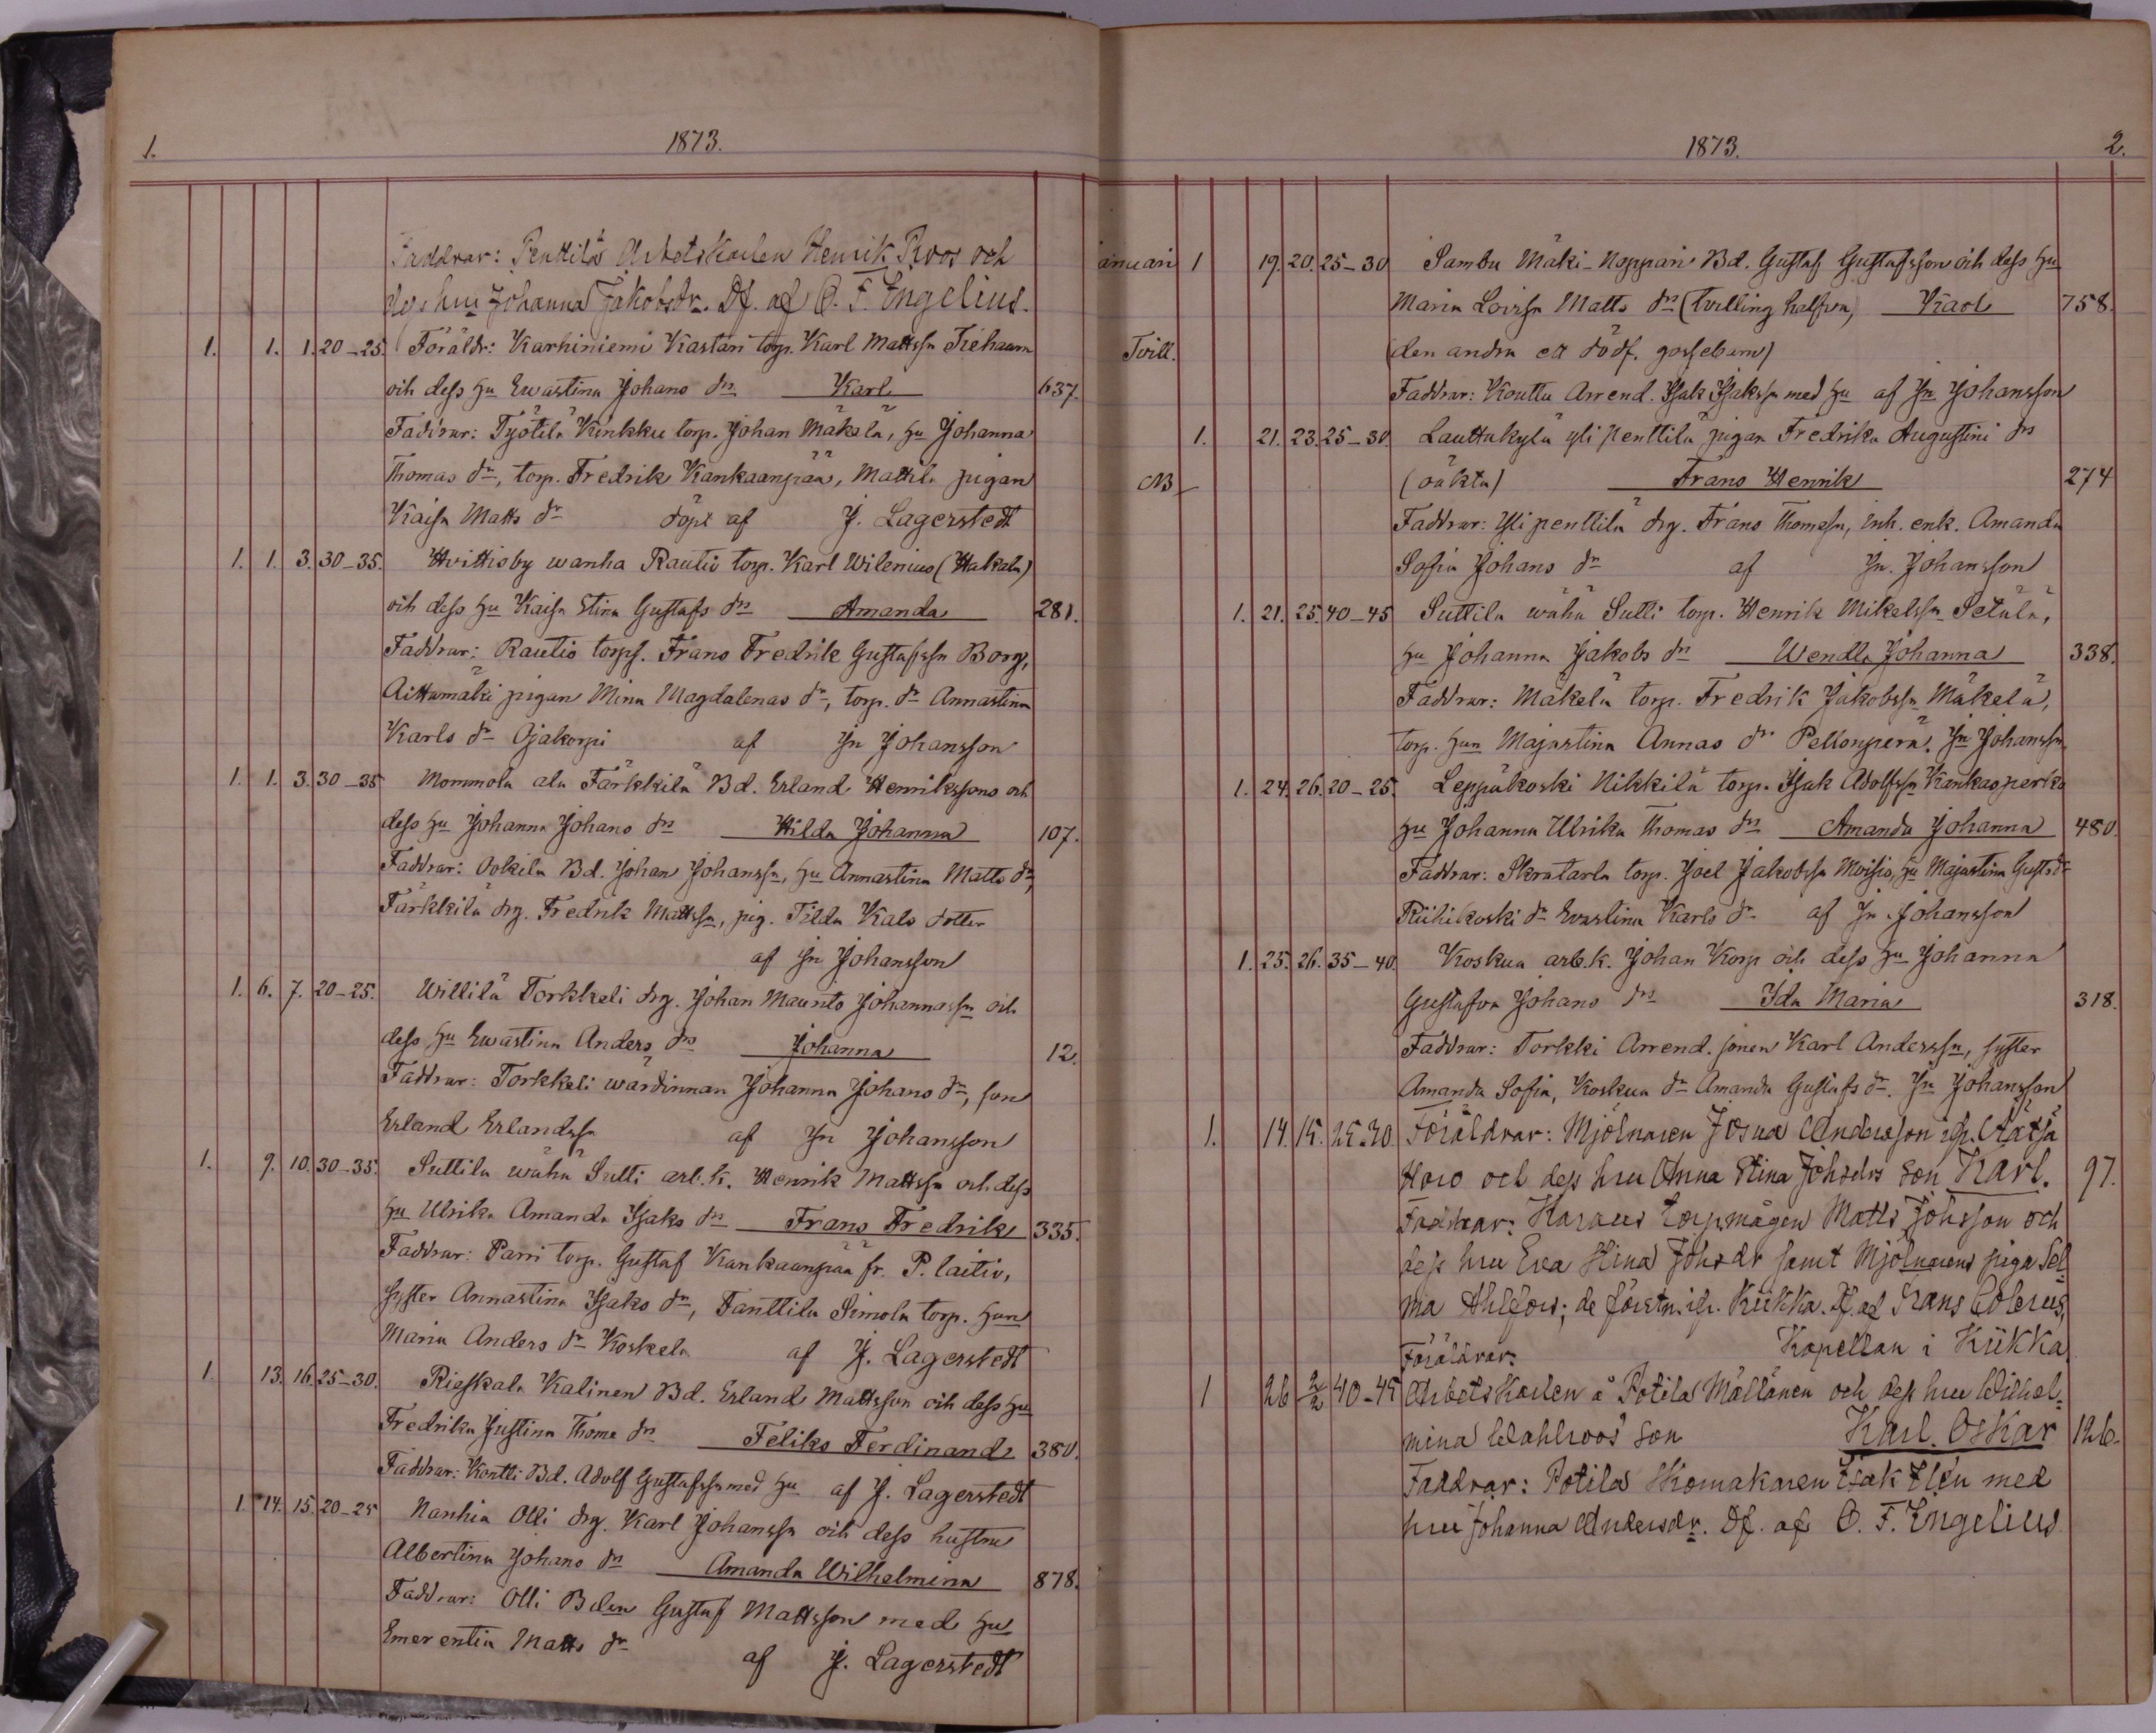 1. 1873.
Faddrar: Penttilä Arbetskarlen Henrik Roos och
dess hu Johanna Jakobsdr. Df. af O. F. Engelius.
1. 1. 1. 20–25. Föräldr: Karhiniemi Kastari torp. Karl Mattssn
och dess hu Ewastina Johans drs Karl 637.
Faddrar: Työtilä Kinkku torp. Johan Mäkelä, hu Johanna
Thomas dr, torp. Fredrik Kankaanpää, Mattila pigan
Kaisa Matts dr döpt af J. Lagerstedt
1. 1. 3. 30–35. Hvittisby wanha Rautio torp. Karl Wilenius (Hakala)
och dess hu Kaisa Stina Gustafs drs Amanda 281.
Faddrar: Rautio torps. Frans Fredrik Gustafssn Borg,
Aittamäki pigan Mina Magdalenas dr, torp. dr Annastina
Karls dr Ojakorpi af Jn Johansson
1. 1. 3. 30–35 Mommola ala Färkkilä Bd. Erland Henrikssons och
dess hu Johanna Johans drs Hilda Johanna 107.
Faddrar: Ookila Bd. Johan Johanssn, hu Annastina Matts dr,
Färkkilä drg. Fredrik Mattssn, pig. Tilda Kals dotter
af Jn Johansson
1. 6. 7. 20–25. Willilä Torkkeli drg. Johan Maunto Johannassn och
dess hu Ewastina Anders drs Johanna 12.
Faddrar: Torkkeli wärdinnan Johanna Johans dr, son
Erland Erlandssn af Jn Johansson
1. 9. 10. 30–35. Suttila wähä Sutti arb.k. Henrik Mattssn och dess
hu Ulrika Amanda Isaks drs Frans Fredrik 335.
Faddrar: Parri torp. Gustaf Kankaanpää fr. P. laitio,
syster Annastina Isaks dr, Fanttila Simola torp. hun
Maria Anders dr Koskela af J. Lagerstedt
1. 13. 16. 25–30. Rieskala Kalinen Bd. Erland Mattsson och dess hu
Fredrika Justina Thome drs Feliks Ferdinand 380.
Faddrar: Kontti Bd. Adolf Gustafssn med hu af J. Lagerstedt
1. 14. 15. 20–25 Nanhia Olli drg. Karl Johanssn och dess hustru
Albertina Johans drs Amanda Wilhelmina 878.
Faddrar: Olli Bden Gustaf Mattsson med hu
Emerentia Matts dr af J. Lagerstedt
1873. 2.
Januari 1 19. 20. 25–30 Sambu Mäki-Noppari Bd. Gustaf Gustafsson och dess hu
Maria Lovisa Matts drs (tvilling halfva) Karl 758.
Tvill. (den andra ett dödf. gossebarn)
Faddrar: Kouttu Arrend. Isak Isakssn med hu af Jn Johansson
1. 21. 23. 25–30. Lauttakylä yli penttilä pigan Fredrika Augustini drs
NB (oäkta) Frans Henrik 274
Faddrar: Yli penttilä drg. Frans Thomassn, inh. enk. Amanda
Sofia Johans dr af Jn. Johansson
1. 21. 25. 40–45 Suttila wähä Sutti torp. Henrik Mikelssn Setälä,
hu Johanna Jakobs drs Wendla Johanna 338.
Faddrar: Mäkelä torp. Fredrik Jakobssn Mäkelä,
torp. hun Majastina Annas dr Pellonperä. Jn Johansson
1. 24. 26. 20–25. Leppäkoski Nikkilä torp. Isak Adolfssn Kankasperko
hu Johanna Ulrika Thomas drs Amanda Johanna 480.
Faddrar: Skratarla torp. Joel Jakobssn Moisio, hu Majastina Gustsdr
Riihikoski dr Evastina Karls dr af Jn Johansson
1. 25. 26. 35–40. Koskua arb.k. Johan Korp och dess hu Johanna
Gustafva Johans drs Ida Maria 318.
Faddrar: Torkki Arrend. sonen Karl Anderssn, syster
Amanda Sofia, Koskua dr Amanda Gustafs dr. Jn Johansson
1. 14. 15. 25–30 Föräldrar: Mjölnaren Josua Andersson ifr. Rätsä
Horo och dess hru Anna Stina Johsdrs son Karl. 97.
Faddrar: Haraus torpmågen Matts Johsson och
dess hru Eva Stina Johsdr samt Mjölnarens piga Sel-
ma Ahlfors; de förstn. ifr. Kiikka. Df. af Frans Colerus,
Kapellan i Kiikka
Föräldrar:
1 26 2/2 40–45 Arbetskarlen å Potila Mällänen och dess hru Wilhel-
mina Wahlroos' son Karl Oskar 126.
Faddrar: Potila Skomakaren Isak Flén med
hru Johanna Andersdr. Df. af O. F. Engelius